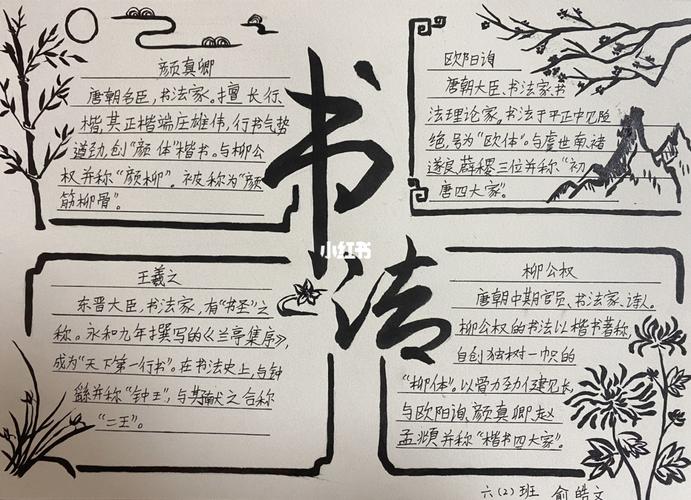 颜真卿
唐朝名臣,书法家。擅长行
楷,其正楷端庄雄伟,行书气势
遒劲,创"颜体"楷书。与柳公
权并称"颜柳"。被称为"颜
筋柳骨"。
书法
小红书
欧阳询
唐朝大臣、书法家、书
法理论家,书法于平正中见险
绝,号为"欧体"。与虞世南、诸
遂良、薛稷三位并称"初
唐四大家"。
王羲之
东晋大臣、书法家,有"书圣"之
称。永和九年撰写的《兰亭集序》,
成为"天下第一行书"。在书法史上,与钟
繇并称"钟王",与其献之合称
"二王"。
柳公权
唐朝中期官员、书法家、诗人。
柳公权的书法以楷书著称,
自创独树一帜的
"柳体",以骨力劲健见长
与欧阳询、颜真卿、赵
孟頫并称"楷书四大家"。
六(2)班 俞皓文